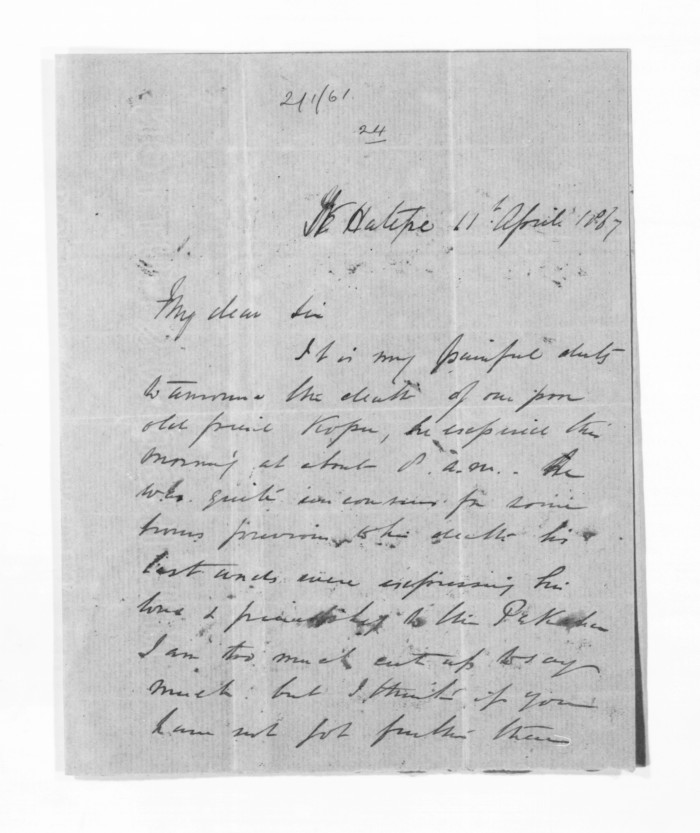 211/61.
24
Te Hatepe 11th April 1867
My dear Sir
It is my painful duty
to announce the death of our poor
old friend Kopu, he expired this
morning at about 8. a.m.. He
was quite unconscious for some
hours previous to his death his
last words were expressing his
love & friendship to the Pakeha
I am too much cut up to say
much. but I think if you
have not got further than